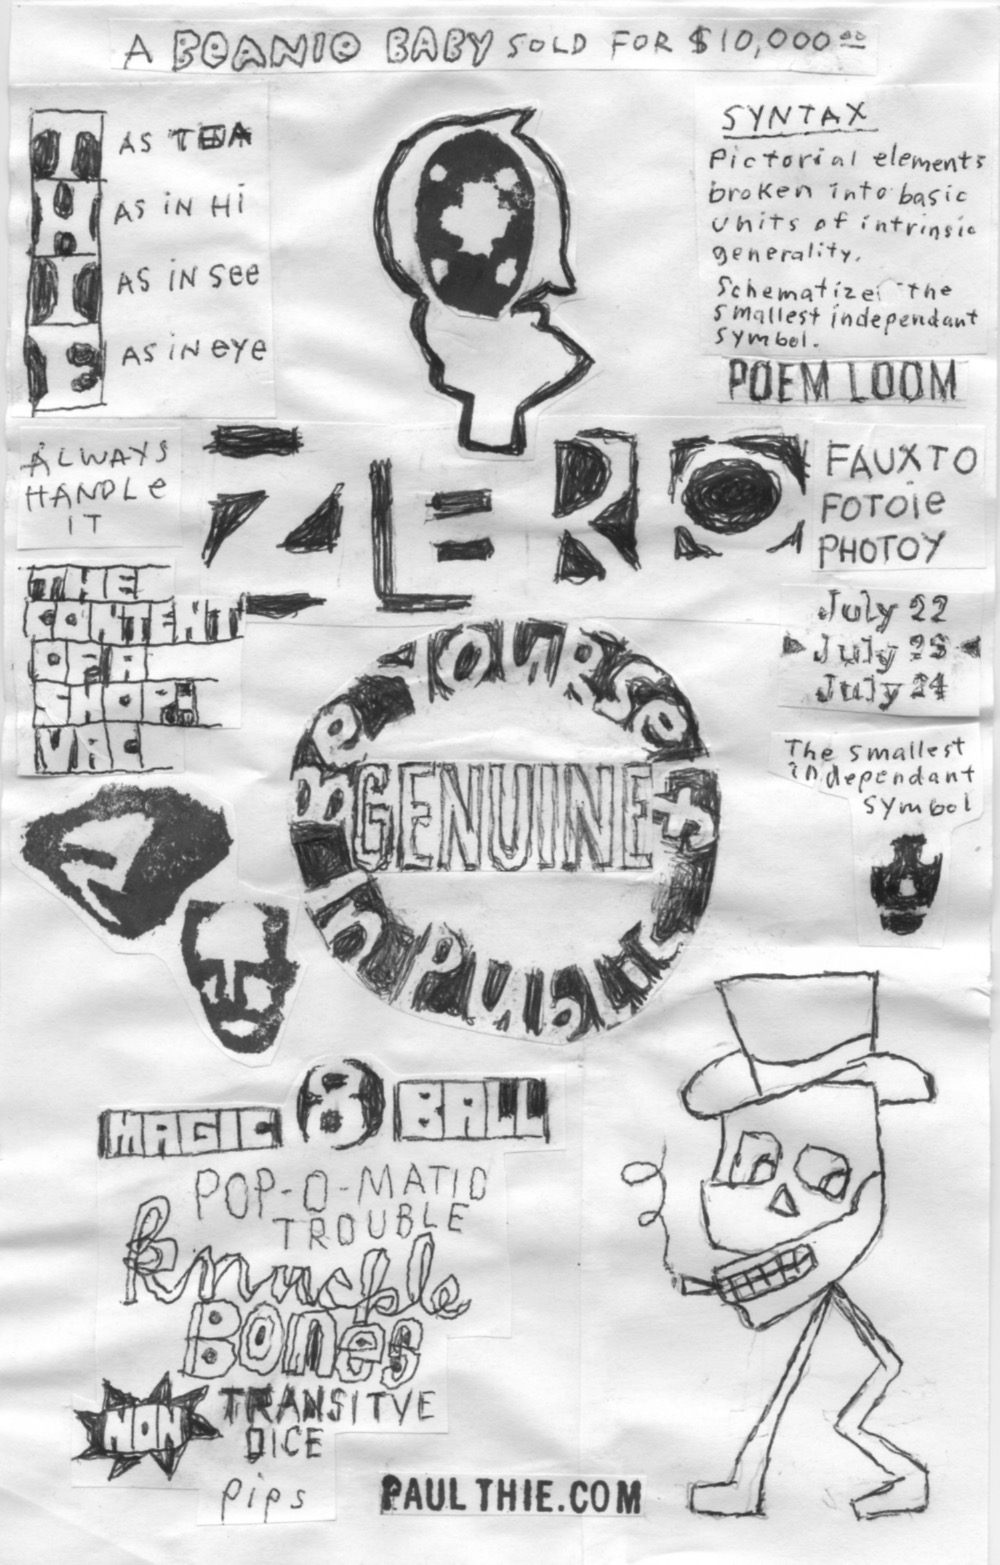 A BEANIE BABY SOLD FOR $10,000.00
AS TEA
AS iN Hi
AS iN See
AS iN eye
SYNTAX
Pictorial elements
broken into basic
units of intrinsic
generality.
Schematize the
smallest independant
symbol.
POEM LOOM
ALWAYS
HANDLe
IT
ZERO
FAUXTO
FOTOie
PHOTOY
THE
OF A
SHOP
VAC
July 22
July 23
July 24
Be YOURSeLF
GENUINE
in PUBLIC
The smallest
independant
symbol
MAGIC 8 BALL
POP-O-MATIC
TROUBLE
Knuckle
BONes
NON TRANSITVE
DICE
pips
PAULTHIE.COM